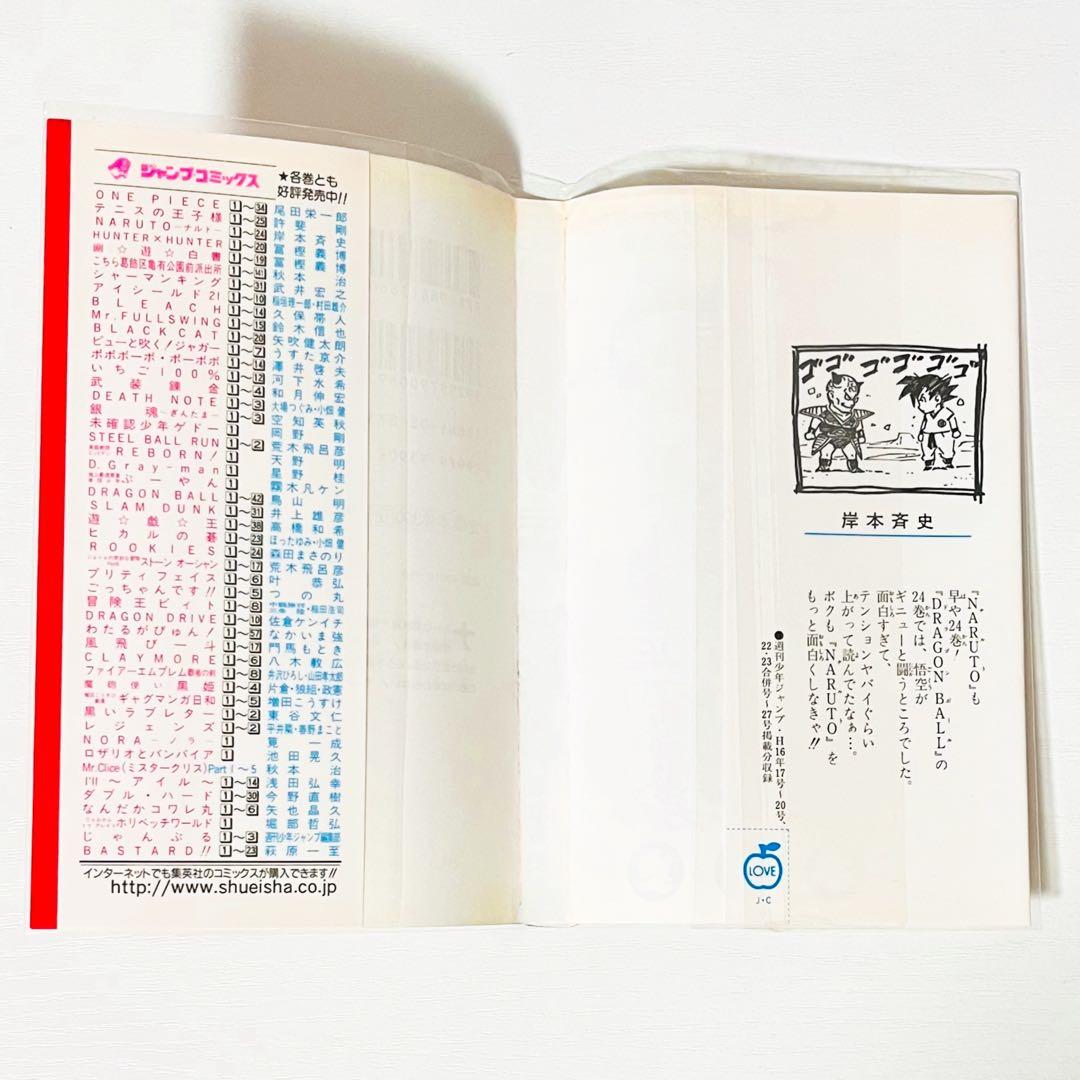 ジャンプコミックス
★各巻とも
好評発売中!!
ONE PIECE 1〜34 尾田栄一郎
テニスの王子様 1〜25 許斐 剛
NARUTO―ナルト― 1〜24 岸本斉史
HUNTER×HUNTER 1〜20 冨樫義博
幽☆遊☆白書 1〜19 冨樫義博
こちら葛飾区亀有公園前派出所 1〜141 秋本 治
シャーマンキング 1〜31 武井宏之
アイシールド21 1〜10 稲垣理一郎・村田雄介
BLEACH 1〜14 久保帯人
Mr.FULLSWING 1〜19 鈴木信也
BLACK CAT 1〜20 矢吹健太朗
ピューと吹く!ジャガー 1〜7 うすた京介
ボボボーボ・ボーボボ 1〜14 澤井啓夫
いちご100% 1〜12 河下水希
武装錬金 1〜4 和月伸宏
DEATH NOTE 1〜3 大場つぐみ・小畑 健
銀魂―ぎんたま― 1〜3 空知英秋
未確認少年ゲドー 1 岡野 剛
STEEL BALL RUN 1〜2 荒木飛呂彦
REBORN! 1 天野 明
D.Gray-man 1 星野 桂
ぷーやん 1 霧木凡ケン
DRAGON BALL 1〜42 鳥山 明
SLAM DUNK 1〜31 井上雄彦
遊☆戯☆王 1〜38 高橋和希
ヒカルの碁 1〜23 ほったゆみ・小畑 健
ROOKIES 1〜24 森田まさのり
ストーン オーシャン 1〜17 荒木飛呂彦
プリティフェイス 1〜6 叶 恭弘
ごっちゃんです!! 1〜5 つの丸
冒険王ビィト 1〜8 三条 陸・稲田浩司
DRAGON DRIVE 1〜10 佐倉ケンイチ
わたるがぴゅん! 1〜57 なかいま強
風飛び一斗 1〜17 門馬もとき
CLAYMORE 1〜6 八木教広
ファイアーエムブレム覇者の剣 1〜8 井沢ひろし・山田孝太郎
魔砲使い黒姫 1〜4 片倉・狼組・政憲
ギャグマンガ日和 1〜5 増田こうすけ
黒いラブレター 1〜2 東谷文仁
レジェンズ 1〜2 平井雷・春野まこと
NORA―ノラ― 1 筧 一成
ロザリオとバンパイア 1 池田晃久
Mr.Clice(ミスタークリス)Part 1〜5 秋本 治
I'll〜アイル〜 1〜14 浅田弘幸
ダブル・ハード 1〜30 今野直樹
なんだかコワレ丸 1〜6 矢也晶久
ホリペッチワールド 1 堀部哲弘
じゃんぷる 1〜3 週刊少年ジャンプ編集部
BASTARD!! 1〜23 萩原一至
インターネットでも集英社のコミックスが購入できます!!
http://www.shueisha.co.jp
ゴゴゴゴゴゴ
岸本斉史
『NARUTO』も
早や24巻!
『DRAGON BALL』の
24巻では、悟空が
ギニューと闘うところでした。
面白すぎて、
テンションヤバイぐらい
上がって読んでたなぁ…。
ボクも『NARUTO』を
もっと面白くしなきゃ!!
●週刊少年ジャンプ・H16年17号〜20号、
22・23合併号〜27号掲載分収録
LOVE
J・C